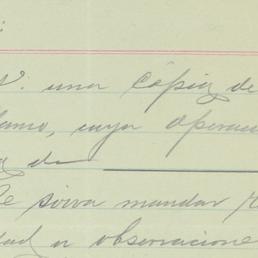 :
V. una cópia de
lamo, cuya operac
de
Se sirva mandar
dad u observacione